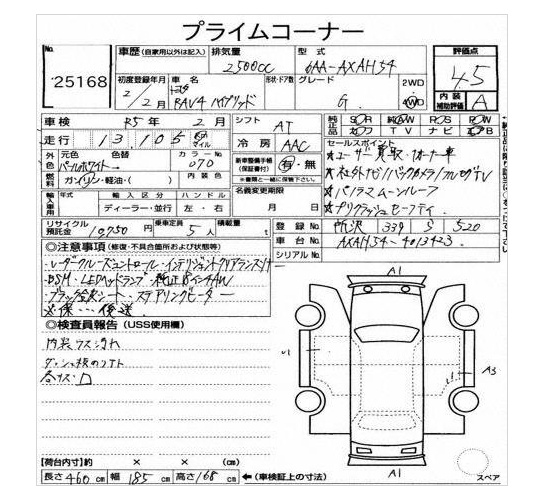 プライムコーナー
No.
25168
車歴 (自家用以外は記入)
排気量
2500cc
型式
6AA-AXAH54
評価点
4.5
初度登録年月
2/2月
車名
トヨタ
RAV4 ハイブリッド
形状・ドア数
グレード
G
2WD
4WD
内装
補助評価
A
車検
R5年 2月
シフト
AT
純正品
S・R
A・W
P・S
P・W
カワ
TV
ナビ
エアB
走行
13,105
Km
マイル
冷房
AAC
セールスポイント
★ユーザー買取・ワンオーナー車
★社外ナビ/バックカメラ/フルセグTV
★パノラマムーンルーフ
★プリクラッシュセーフティ
外色
元色
色替
パールホワイト→
カラーNo
070
新車整備手帳
(保証書付)
有・無
※書類と一緒に後送
燃料
ガソリン・軽油・( )
内装色
名義変更期限
月 日
年式
輸入区分
ハンドル
ディーラー・並行
左・右
リサイクル
預託金
10750円
乗車定員
5人
積載量
t
登録No
所沢 339 S 520
車台No
AXAH54-4013423
シリアルNo
◎注意事項 (修復・不具合箇所および状態等)
・レーダークルーズコントロール・インテリジェントクリアランスソナー
・BSM・LEDヘッドランプ・純正18インチAW
・ブラック合皮シート・ステアリングヒーター
※保…後送
◎検査員報告 (USS使用欄)
内装ウスヨゴレ
各キズ
A1
A3
A1
【荷台内寸】約 × × (cm)
長さ 460 cm 幅 185 cm 高さ 168 cm
←(車検証上の寸法)
スペア